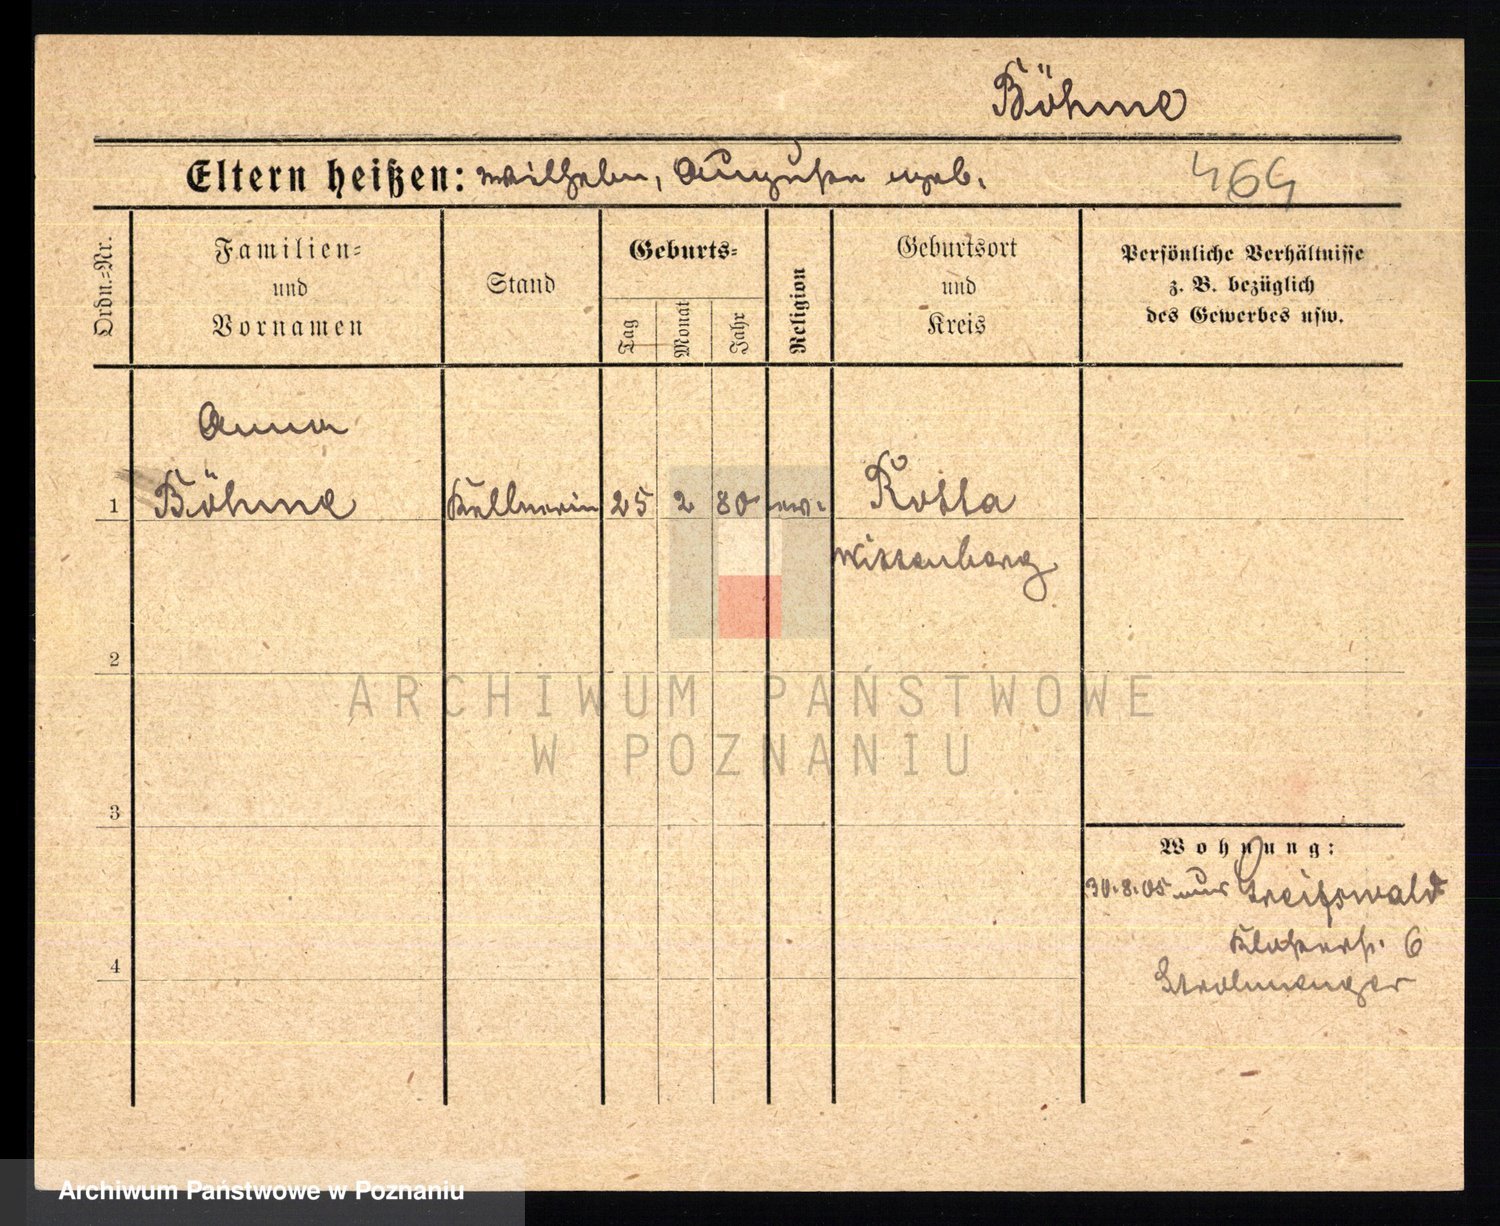 Böhme
Eltern heißen: Wilhelm, Auguste geb.
464
Ordn.=Nr.
Familien=
und
Vornamen
Stand
Geburts=
Tag
Monat
Jahr
Religion
Geburtsort
und
Kreis
Persönliche Verhältnisse
z. B. bezüglich
des Gewerbes usw.
Anna
1 Böhme Kellnerin 25 2 80 ev. Rotta
Wittenberg
2
ARCHIWUM PAŃSTWOWE
W POZNANIU
3
Wohnung:
30.8.05 aus Greifswald
Klosterstr. 6
4
Strohmenger
Archiwum Państwowe w Poznaniu